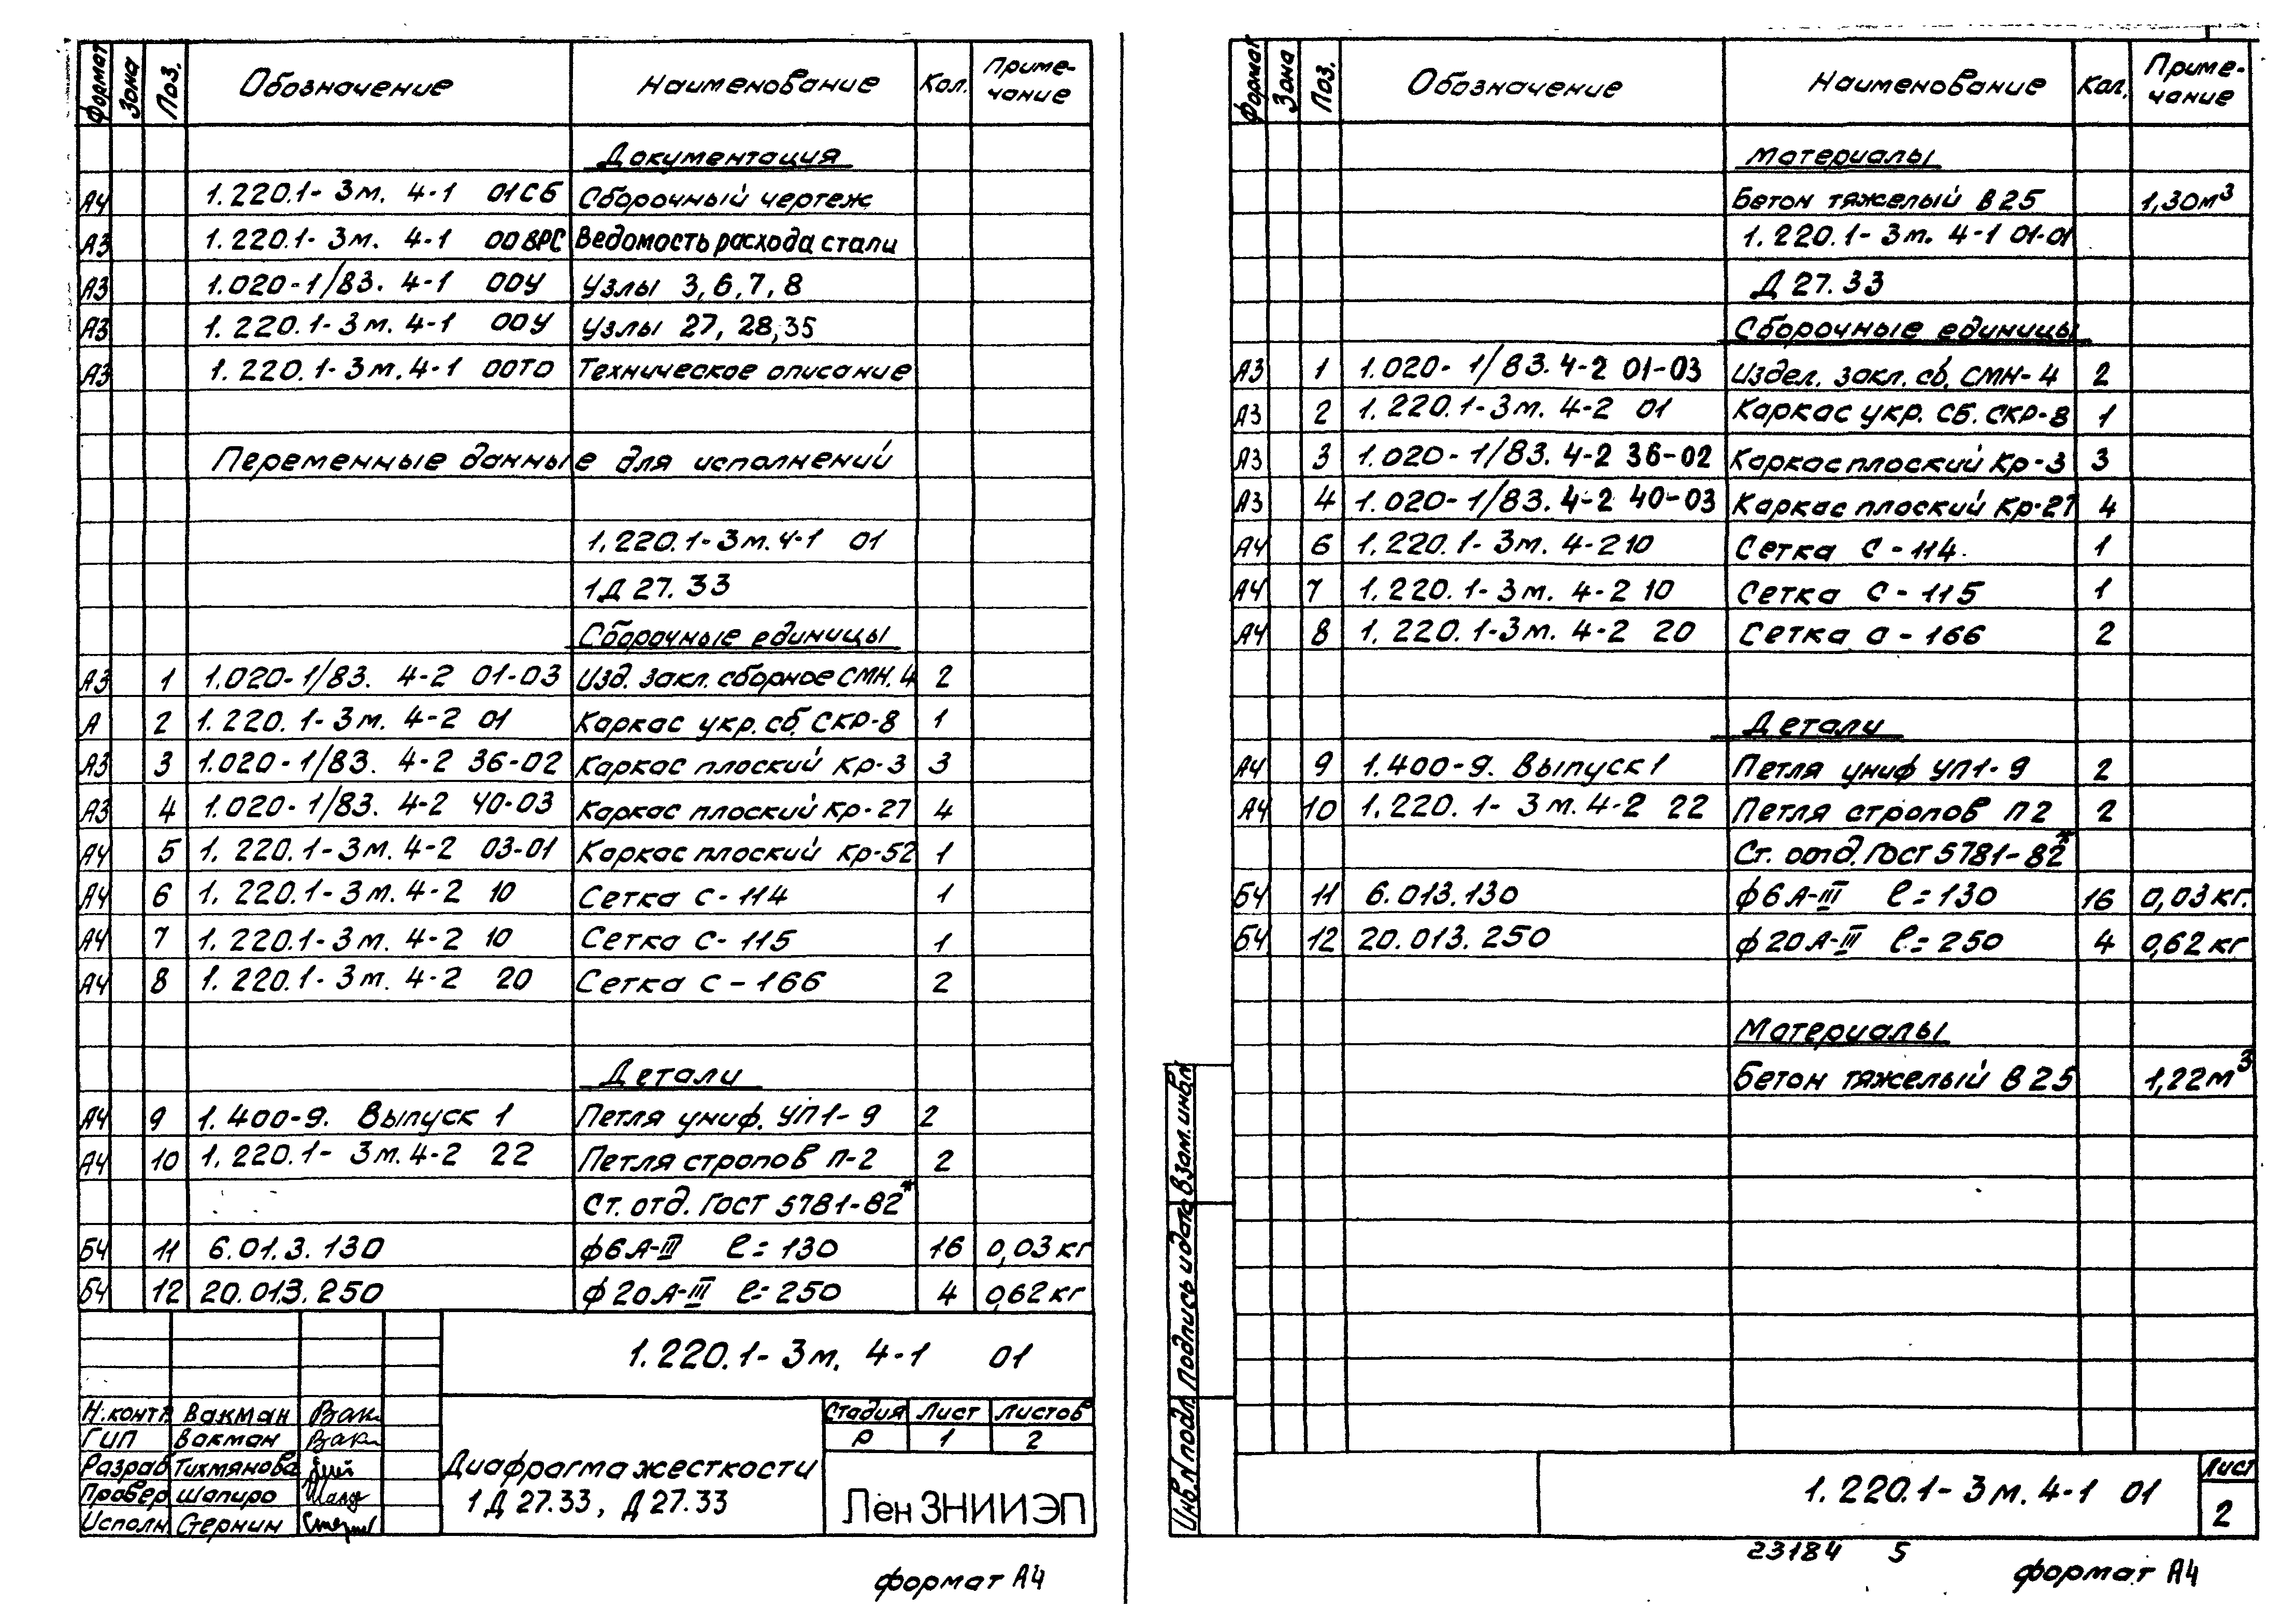 Формат Зона Поз. Обозначение Наименование Кол. Приме-
чание
Документация
А4 1.220.1-3м. 4-1 01СБ Сборочный чертеж
А3 1.220.1-3м. 4-1 00ВРС Ведомость расхода стали
А3 1.020-1/83. 4-1 00У Узлы 3,6,7,8
А3 1.220.1-3м. 4-1 00У Узлы 27, 28,35
А3 1.220.1-3м.4-1 00ТО Техническое описание
Переменные данные для исполнений
1.220.1-3м.4-1 01
1Д 27.33
Сборочные единицы
А3 1 1.020-1/83. 4-2 01-03 Изд. закл. сборное СМН.4 2
А 2 1.220.1-3м. 4-2 01 Каркас укр. сб. СКР-8 1
А3 3 1.020-1/83. 4-2 36-02 Каркас плоский Кр-3 3
А3 4 1.020-1/83. 4-2 40-03 Каркас плоский Кр-27 4
А4 5 1.220.1-3м.4-2 03-01 Каркас плоский Кр-52 1
А4 6 1.220.1-3м.4-2 10 Сетка С-114 1
А4 7 1.220.1-3м. 4-2 10 Сетка С-115 1
А4 8 1.220.1-3м. 4-2 20 Сетка С-166 2
Детали
А4 9 1.400-9. Выпуск 1 Петля униф. УП1-9 2
А4 10 1.220.1-3м.4-2 22 Петля стропов П-2 2
Ст. отд. ГОСТ 5781-82*
БЧ 11 6.01.3.130 ф6А-III ℓ=130 16 0,03 кг
БЧ 12 20.013.250 ф20А-III ℓ=250 4 0,62 кг
1.220.1-3м. 4-1 01
Н.контр Вакман Вак
ГИП Вакман Вак
Разраб Тихмянова
Провер Шапиро
Исполн Стернин
Диафрагма жесткости
1Д 27.33, Д 27.33
Стадия Лист Листов
Р 1 2
ЛенЗНИИЭП
формат А4
Формат Зона Поз. Обозначение Наименование Кол. Приме-
чание
Материалы
Бетон тяжелый В25 1,30м³
1.220.1-3м. 4-1 01-01
Д 27.33
Сборочные единицы
А3 1 1.020-1/83. 4-2 01-03 Издел. закл. сб. СМН-4 2
А3 2 1.220.1-3м. 4-2 01 Каркас укр. сб. СКР-8 1
А3 3 1.020-1/83. 4-2 36-02 Каркас плоский Кр-3 3
А3 4 1.020-1/83. 4-2 40-03 Каркас плоский Кр-27 4
А4 6 1.220.1-3м. 4-2 10 Сетка С-114 1
А4 7 1.220.1-3м. 4-2 10 Сетка С-115 1
А4 8 1.220.1-3м. 4-2 20 Сетка С-166 2
Детали
А4 9 1.400-9. Выпуск 1 Петля униф УП1-9 2
А4 10 1.220.1-3м.4-2 22 Петля стропов П2 2
Ст. отд. ГОСТ 5781-82*
БЧ 11 6.013.130 ф6А-III ℓ=130 16 0,03 кг.
БЧ 12 20.013.250 ф20А-III ℓ=250 4 0,62 кг
Материалы
Бетон тяжелый В25 1,22м³
Взам. инв.№
Подпись и дата
Инв.№ подл.
1.220.1-3м.4-1 01
Лист
2
23184 5
формат А4